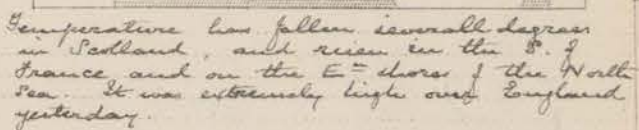 Temperature has fallen severall degrees
in Scotland, and risen in the S. of
France and on the E<sup>n</sup> shores of the North
Sea. It was extremely high over England
yesterday.